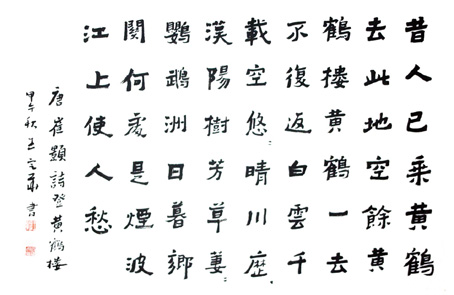 昔人已乘黃鶴
去此地空餘黃
鶴樓黃鶴一去
不復返白雲千
載空悠:晴川歷
漢陽樹芳草萋:
鸚鵡洲日暮鄉
關何處是煙波
江上使人愁
唐崔顥詩登黃鶴楼
甲午秋王書